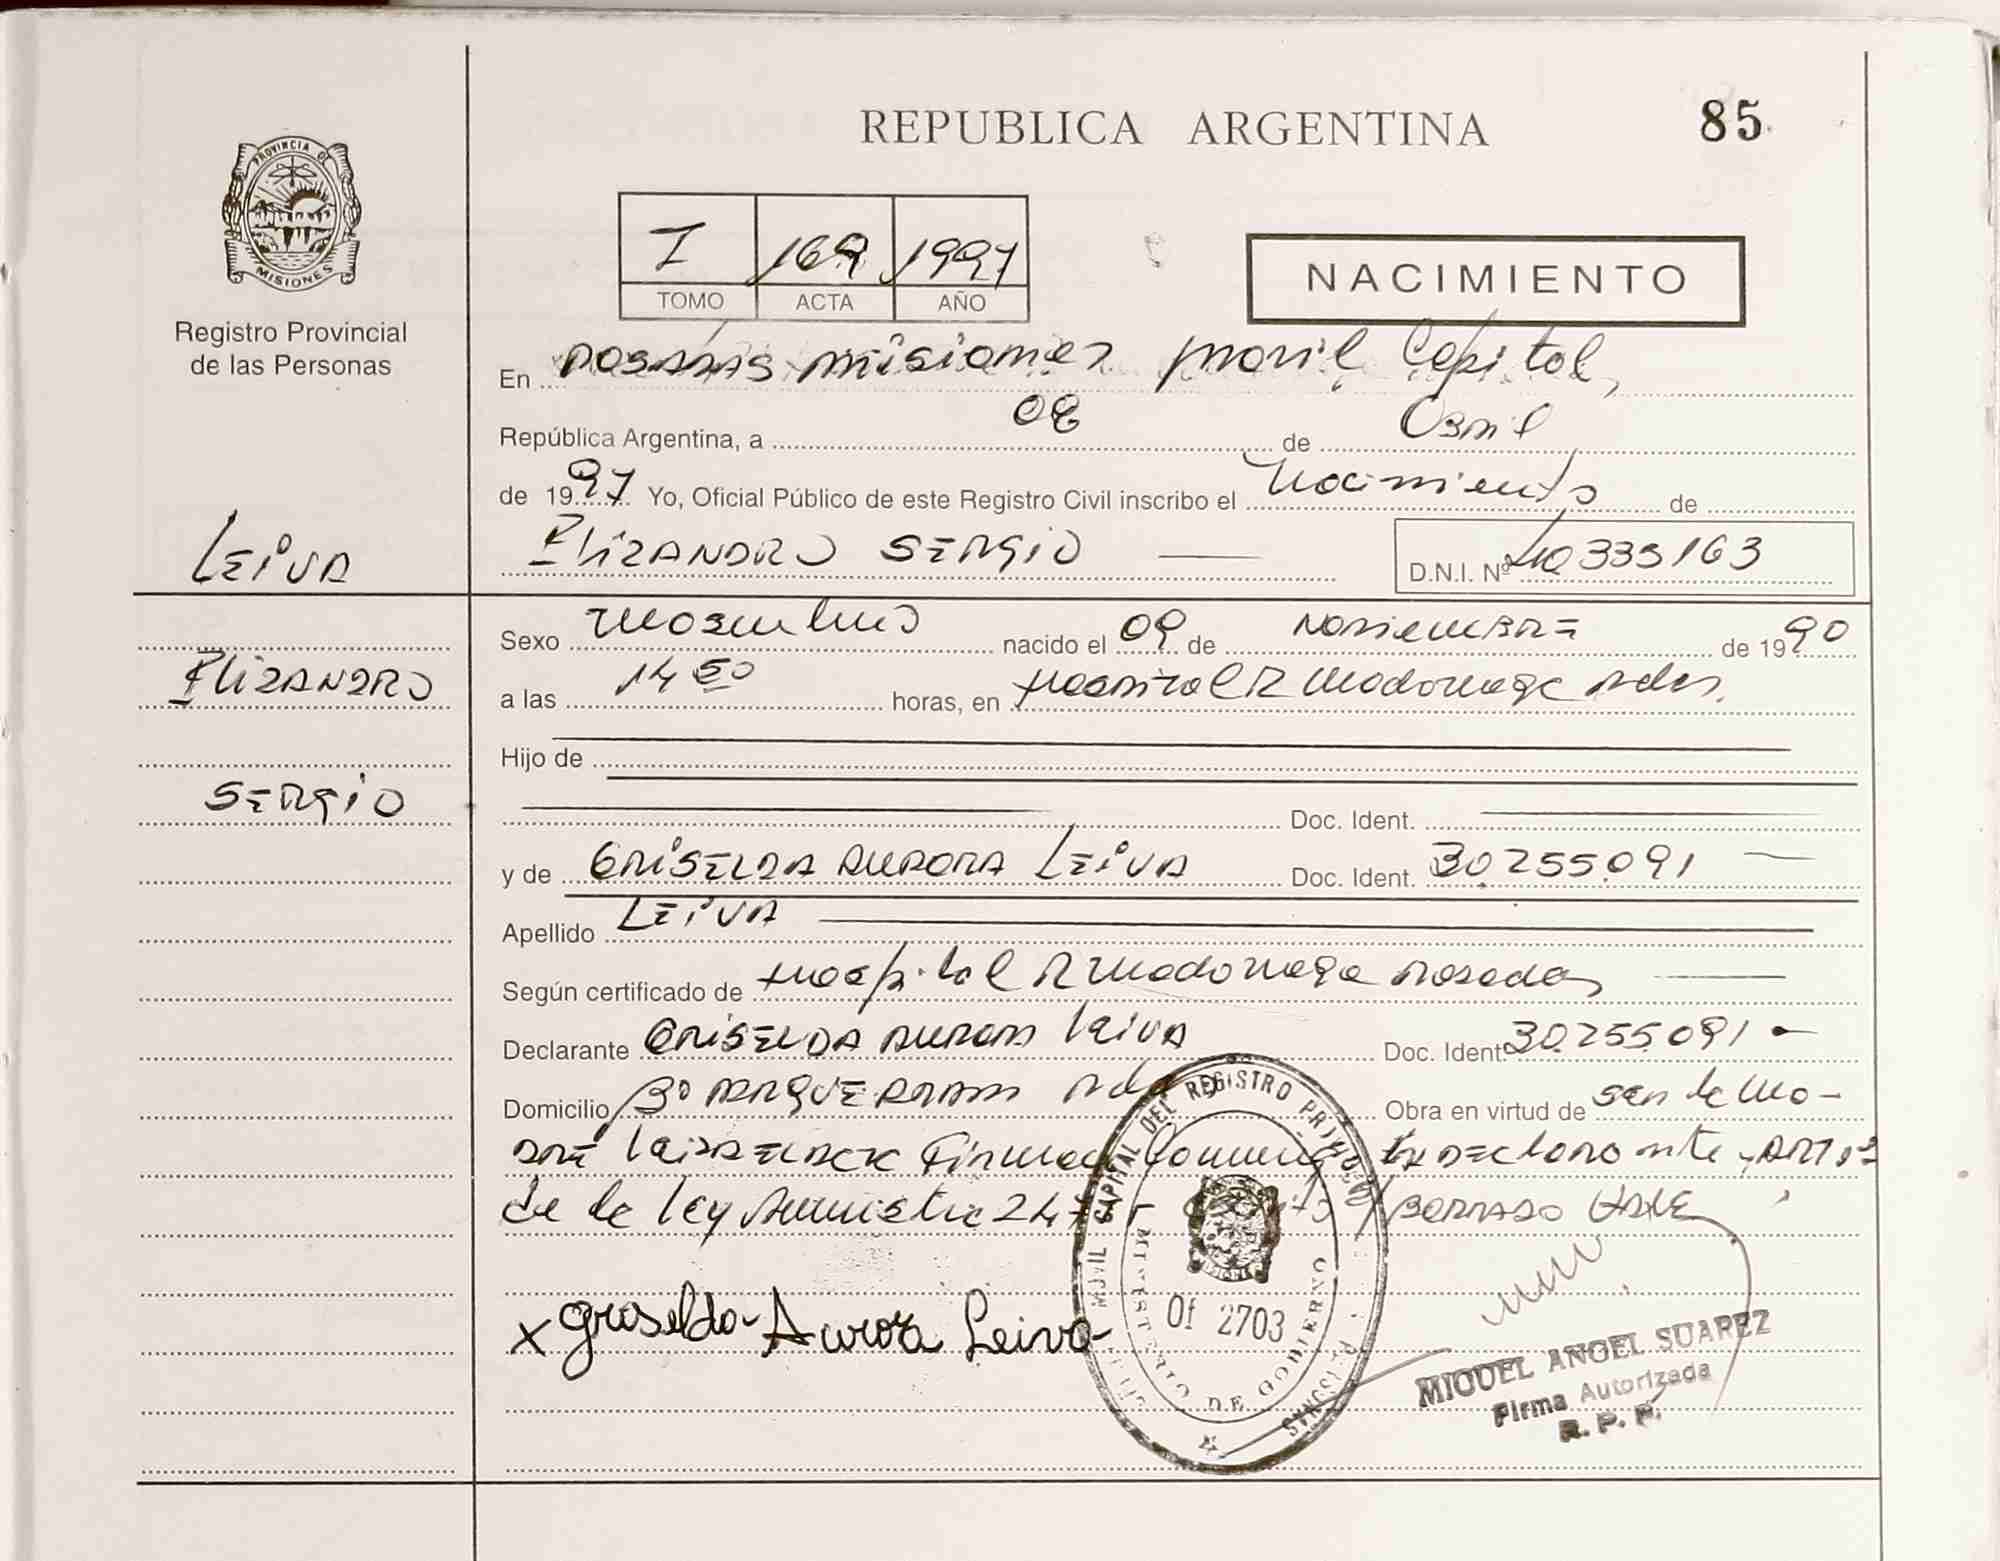 REPUBLICA ARGENTINA
85
PROVINCIA DE
MISIONES
Registro Provincial
de las Personas
I 169 1997
TOMO ACTA AÑO
NACIMIENTO
En posadas misiones movil Capital,
República Argentina, a 08 de Abril
de 1997 Yo, Oficial Público de este Registro Civil inscribo el Nacimiento de
LEIVA
ELIZANDRO SERGIO D.N.I. Nº 40335163
Sexo masculino nacido el 09 de NOVIEMBRE de 1990
ELIZANDRO
a las 14 50 horas, en Hospital R Madariaga pdas.
Hijo de
SERGIO
Doc. Ident.
y de GRISELDA AURORA LEIVA Doc. Ident. 30.255.091
Apellido LEIVA
Según certificado de Hospital R Madariaga Posadas
Declarante GRISELDA AURORA Leiva Doc. Ident. 30.255.091 -
Domicilio Bº pdas Obra en virtud de ser la ma-
dre Firman declarante ART
de la ley Amnistia BORRADO VALE
x Griselda Aurora Leiva
MOVIL CAPITAL DEL REGISTRO
MINISTERIO DE GOBIERNO
Of 2703
MIGUEL ANGEL SUAREZ
Firma Autorizada
R. P. P.